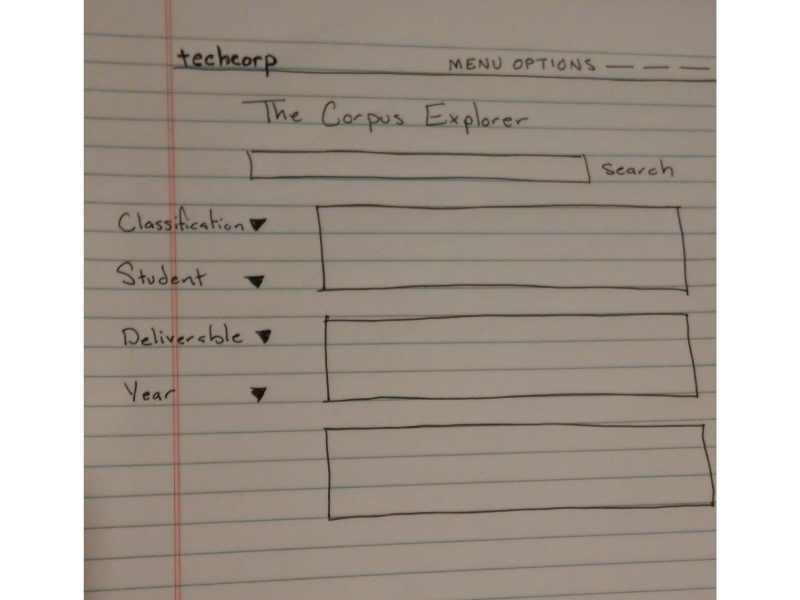 techcorp MENU OPTIONS
The Corpus Explorer
search
Classification
Student
Deliverable
Year